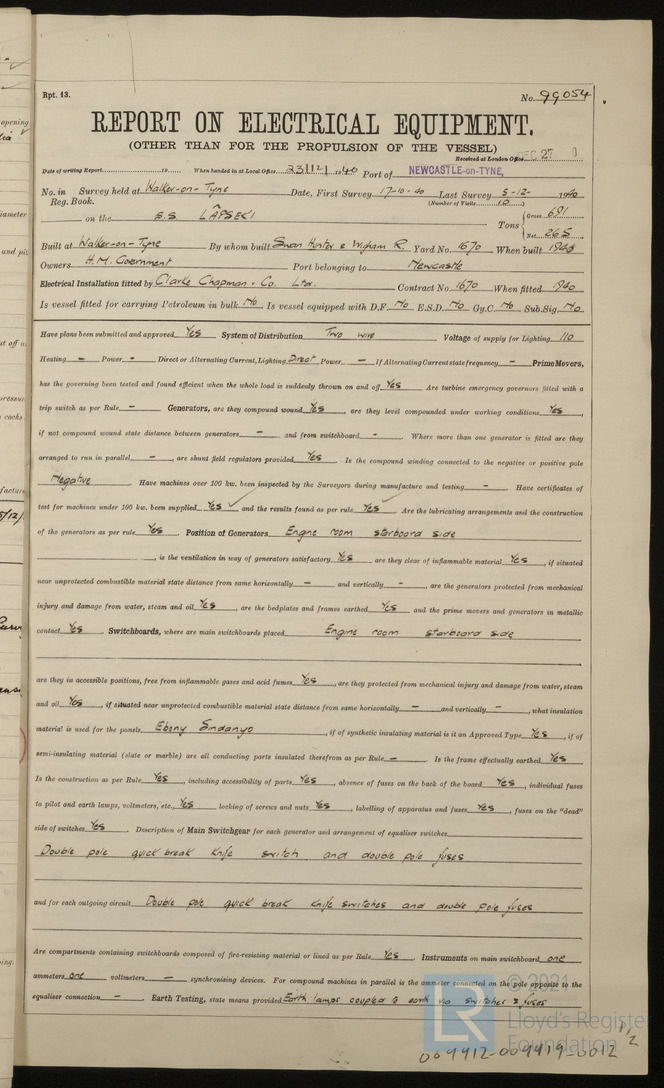 Rpt. 13.
No. 99054
REPORT ON ELECTRICAL EQUIPMENT.
(OTHER THAN FOR THE PROPULSION OF THE VESSEL)
Received at London Office DEC 27
Date of writing Report 19 When handed in at Local Office 23/12/1940 Port of NEWCASTLE-on-TYNE,
No. in Survey held at Walker-on-Tyne Date, First Survey 17-10-40 Last Survey 5-12-1940
Reg. Book. (Number of Visits 10)
on the S.S. LÂPSEKI Tons { Gross 691
Net 265
Built at Walker-on-Tyne By whom built Swan Hunter & Wigham R. Yard No. 1670 When built
Owners H.M. Government Port belonging to Newcastle
Electrical Installation fitted by Clarke Chapman & Co. Ltd. Contract No. 1670 When fitted 1940
Is vessel fitted for carrying Petroleum in bulk No Is vessel equipped with D.F. No E.S.D. No Gy.C. No Sub.Sig. No
Have plans been submitted and approved Yes System of Distribution Two wire Voltage of supply for Lighting 110
Heating - Power - Direct or Alternating Current, Lighting Direct Power - If Alternating Current state frequency - Prime Movers,
has the governing been tested and found efficient when the whole load is suddenly thrown on and off Yes Are turbine emergency governors fitted with a
trip switch as per Rule - Generators, are they compound wound Yes, are they level compounded under working conditions Yes,
if not compound wound state distance between generators - and from switchboard -. Where more than one generator is fitted are they
arranged to run in parallel -, are shunt field regulators provided Yes. Is the compound winding connected to the negative or positive pole
Negative. Have machines over 100 kw. been inspected by the Surveyors during manufacture and testing -. Have certificates of
test for machines under 100 kw. been supplied Yes ✓ and the results found as per rule Yes ✓. Are the lubricating arrangements and the construction
of the generators as per rule Yes. Position of Generators Engine room starboard side
, is the ventilation in way of generators satisfactory Yes are they clear of inflammable material Yes, if situated
near unprotected combustible material state distance from same horizontally - and vertically -, are the generators protected from mechanical
injury and damage from water, steam and oil Yes, are the bedplates and frames earthed Yes and the prime movers and generators in metallic
contact Yes. Switchboards, where are main switchboards placed Engine room starboard side
are they in accessible positions, free from inflammable gases and acid fumes Yes, are they protected from mechanical injury and damage from water, steam
and oil Yes, if situated near unprotected combustible material state distance from same horizontally - and vertically -, what insulation
material is used for the panels Ebony Sindanyo, if of synthetic insulating material is it an Approved Type Yes, if of
semi-insulating material (slate or marble) are all conducting parts insulated therefrom as per Rule -. Is the frame effectually earthed Yes
Is the construction as per Rule Yes, including accessibility of parts Yes, absence of fuses on the back of the board Yes, individual fuses
to pilot and earth lamps, voltmeters, etc., Yes locking of screws and nuts Yes, labelling of apparatus and fuses Yes, fuses on the "dead"
side of switches Yes. Description of Main Switchgear for each generator and arrangement of equaliser switches
Double pole quick break knife switch and double pole fuses
and for each outgoing circuit Double pole quick break knife switches and double pole fuses
Are compartments containing switchboards composed of fire-resisting material or lined as per Rule Yes. Instruments on main switchboard one
ammeters one voltmeters - synchronising devices. For compound machines in parallel is the ammeter connected on the pole opposite to the
equaliser connection -. Earth Testing, state means provided Earth lamps coupled to earth via switches & fuses
LR
© 2021
Lloyd's Register
Foundation
1/2
004412-004419-0012